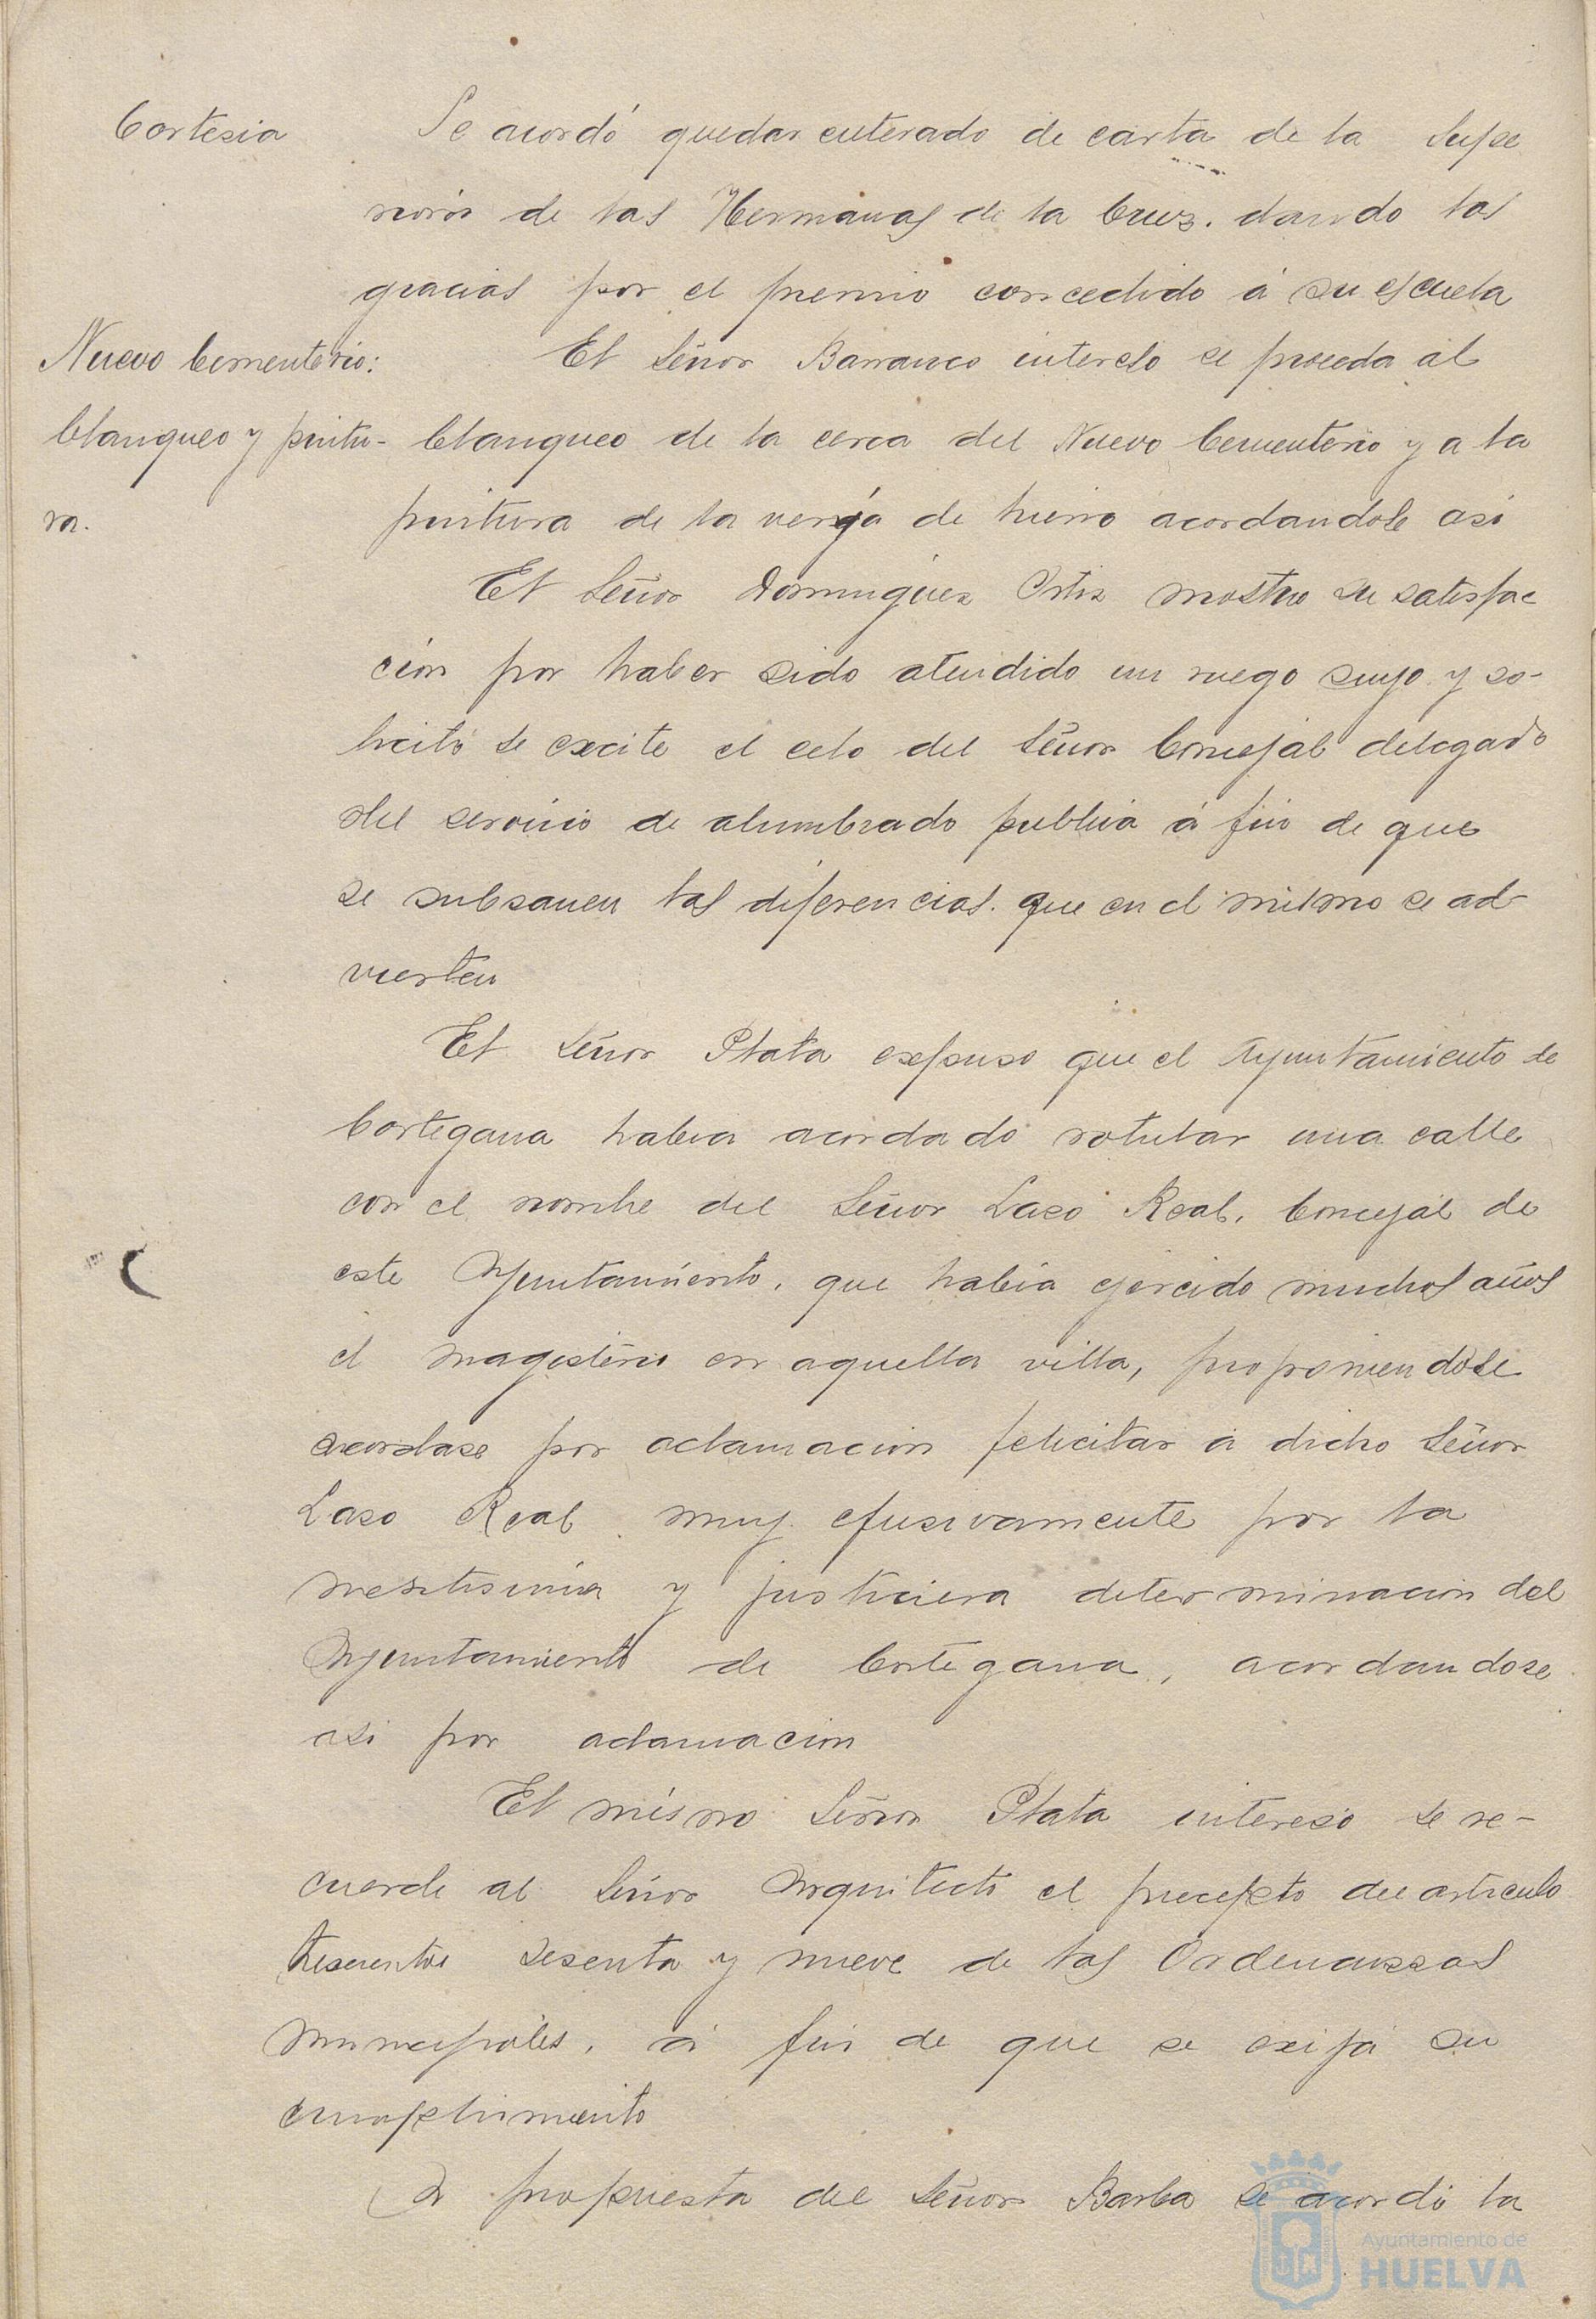 Cortesia
Se acordó quedar enterado de carta de la Supe
riora de las Hermanas de la Cruz. dando las
gracias por el premio concedido á su escuela
Nuevo Cementerio:
blanqueo y pintu-
ra.
El Señor Barranco intereso se proceda al
blanqueo de la cerca del Nuevo Cementerio y a la
pintura de la verja de hierro acordandose asi
El Señor Dominguez Ortiz mostro su satisfac
cion por haber sido atendido un ruego suyo y so-
licitó se excite el celo del Señor Concejal delegado
del servicio de alumbrado publico á fin de que
se subsanen las diferencias que en el mismo se ad-
vierten
El Señor Plata expuso que el Ayuntamiento de
Cortegana habia acordado rotular una calle
con el nombre del Señor Laso Real, Concejal de
este Ayuntamiento, que habia ejercido muchos años
el magisterio en aquella villa, proponiendose
acordase por aclamacion felicitar á dicho Señor
Laso Real muy efusivamente por la
meritisima y justiciera determinacion del
Ayuntamiento de Cortegana, acordandose
asi por aclamacion
El mismo Señor Plata intereso se re-
cuerde al Señor Arquitecto el precepto del articulo
trescientos sesenta y nueve de las Ordenanzas
municipales, á fin de que se exija su
cumplimiento
A propuesta del Señor Barba se acordó la
Ayuntamiento de
HUELVA